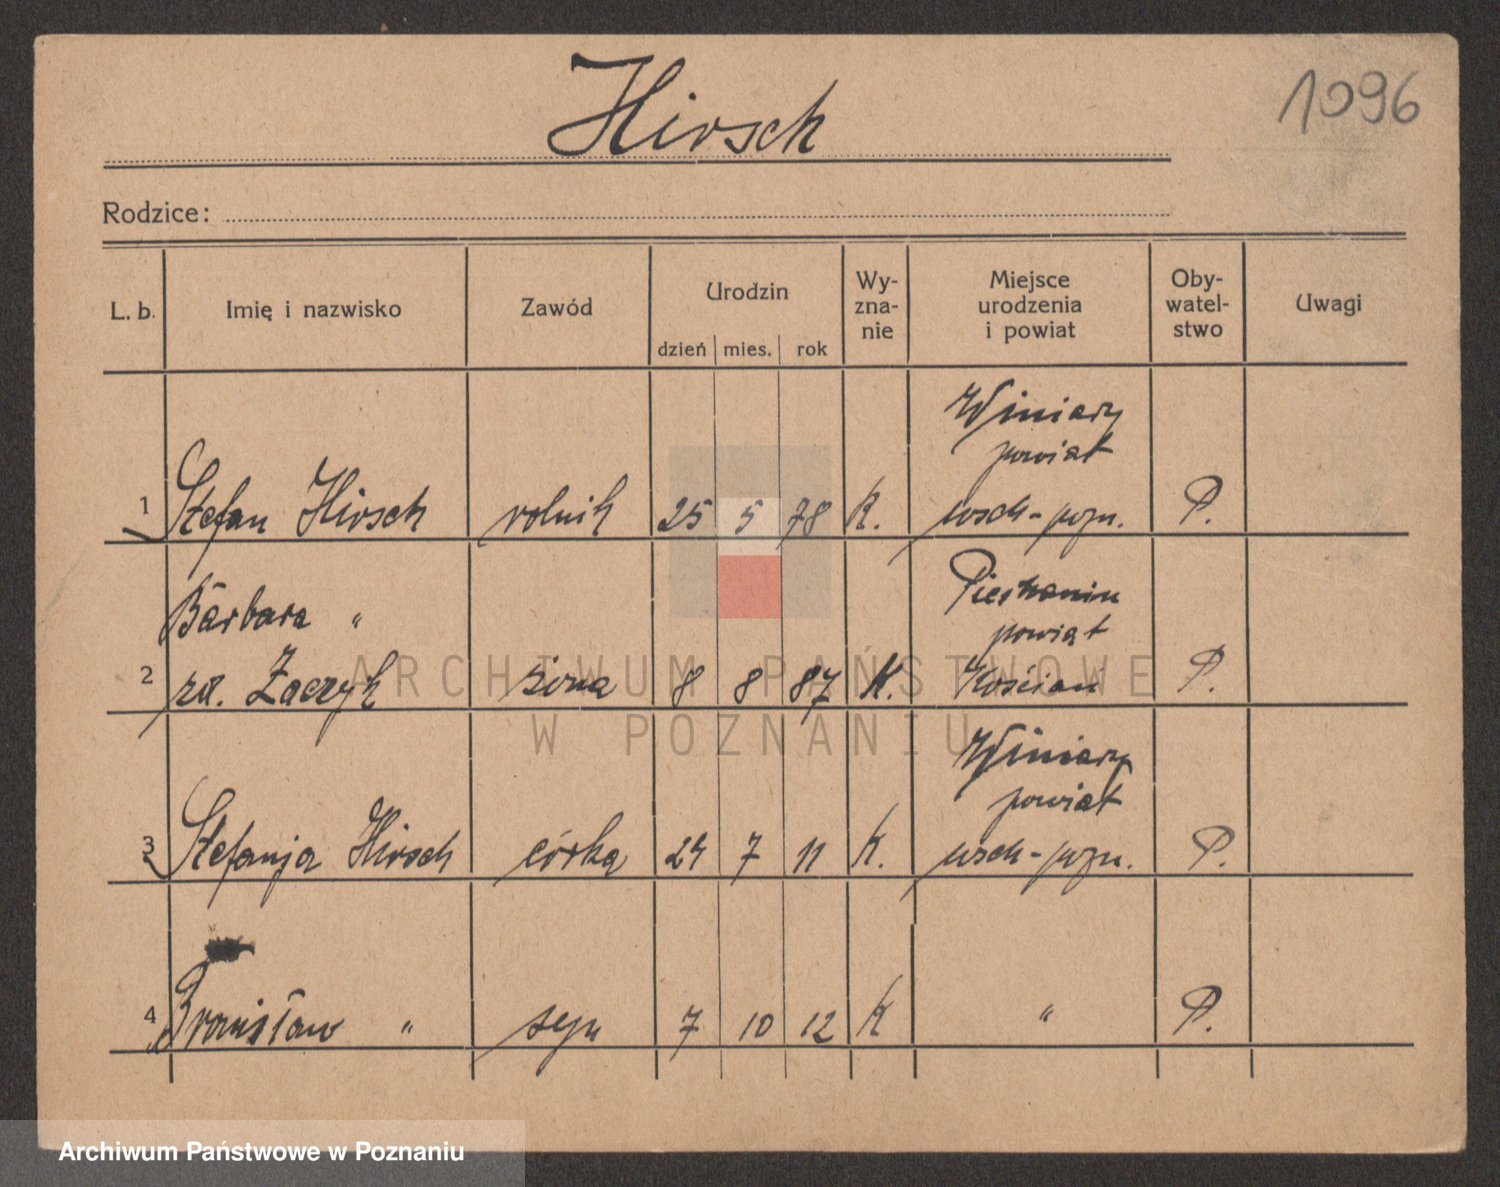 Hirsch
1096
Rodzice:
L. b. Imię i nazwisko Zawód Urodzin dzień mies. rok Wy-zna-nie Miejsce urodzenia i powiat Oby-watel-stwo Uwagi
Winiary
powiat
1 Stefan Hirsch rolnik 25 5 78 K. wsch-pozn. P.
Barbara "
powiat
2 zd. Żaczyk żona 8 8 87 K. Kościan P.
Winiary
powiat
3 Stefanja Hirsch córka 24 7 11 K. wsch-pozn. P.
4 Bronisław " syn 7 10 12 K " P.
ARCHIWUM PAŃSTWOWE
W POZNANIU
Archiwum Państwowe w Poznaniu